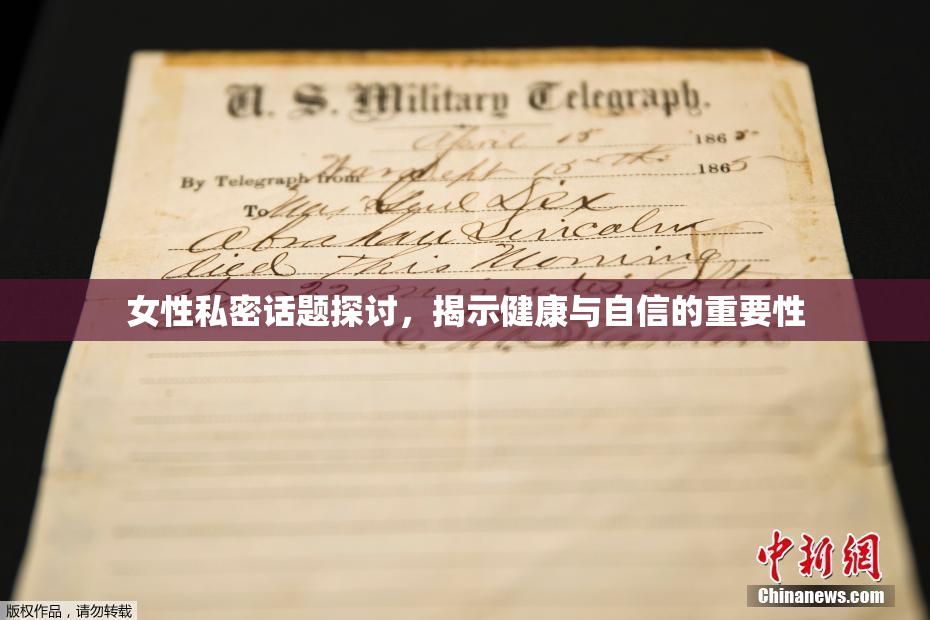 U. S. Military Telegraph.
April 15 1865
By Telegraph from War Dept 15th 1865
To Maj Genl Dix
Abraham Lincoln
died This Morning
22 minutes after
女性私密话题探讨，揭示健康与自信的重要性
中新网
Chinanews.com
版权作品，请勿转载